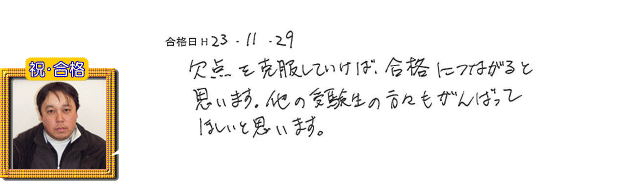 合格日H 23・11・29
祝・合格
欠点を克服していけば、合格につながると
思います。他の受験生の方々もがんばって
ほしいと思います。